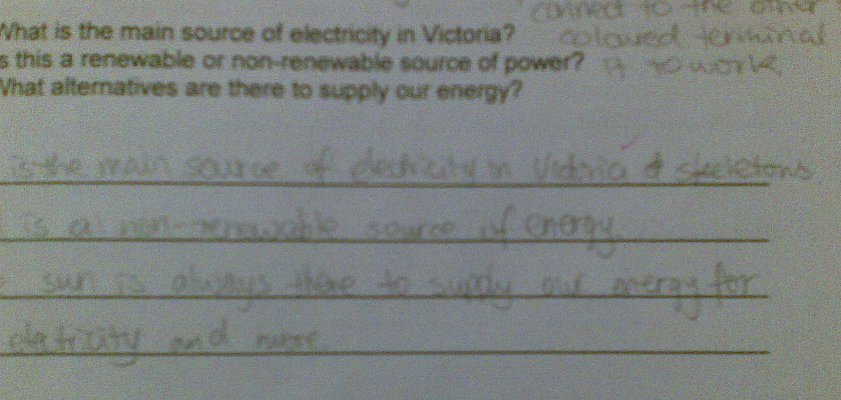 connect to the other
What is the main source of electricity in Victoria? coloured terminal
is this a renewable or non-renewable source of power? to work
What alternatives are there to supply our energy?
is the main source of electricity in Victoria & skeletons
is a non-renewable source of energy.
sun is always there to supply our energy for
eletricity and more.